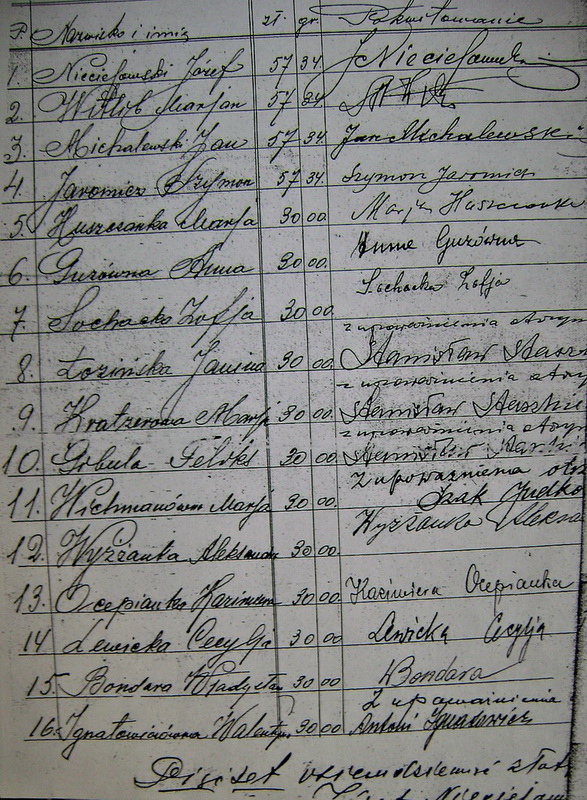 Nazwisko i imię zł. gr. Pokwitowanie
1. Niecielowski Józef 57 34 J Niecielowski
2. Wittlib Marjan 57 34
3. Michalewski Jan 57 34 Jan Michalewski
4. Jaromicz Szymon 57 34 Szymon Jaromicz
5. Huszczanka Marja 30 00 Marja Huszczanka
6. Gurówna Anna 30 00. Anna Gurówna
7. Sochacka Zofja 30 00. Sochacka Zofja
z upoważnienia
8. Łozińska Janina 30 00. Stanisław
z upoważnienia
9. Kratzerowa Marja 30 00. Stanisław
z upoważnienia
10. Gobula Feliks 30 00. Stanisław
Z upoważnienia
11. Wichmanówna Marja 30 00. Izak Judko
12. Wyżżanka Aleksandra 30 00. Wyżżanka Aleksa
13. Ocepianka Kazimiera 30 00. Kazimiera Ocepianka
14 Lewicka Cecylja 30 00 Lewicka Cecylja
15. Bondara Władysław 30 00 Bondara
Z upoważnienia
16. Ignatowiczówna Walentyna 30 00. Antoni Ignatowicz
Pięćset osiemdziesiąt złot
Józef Niecielow